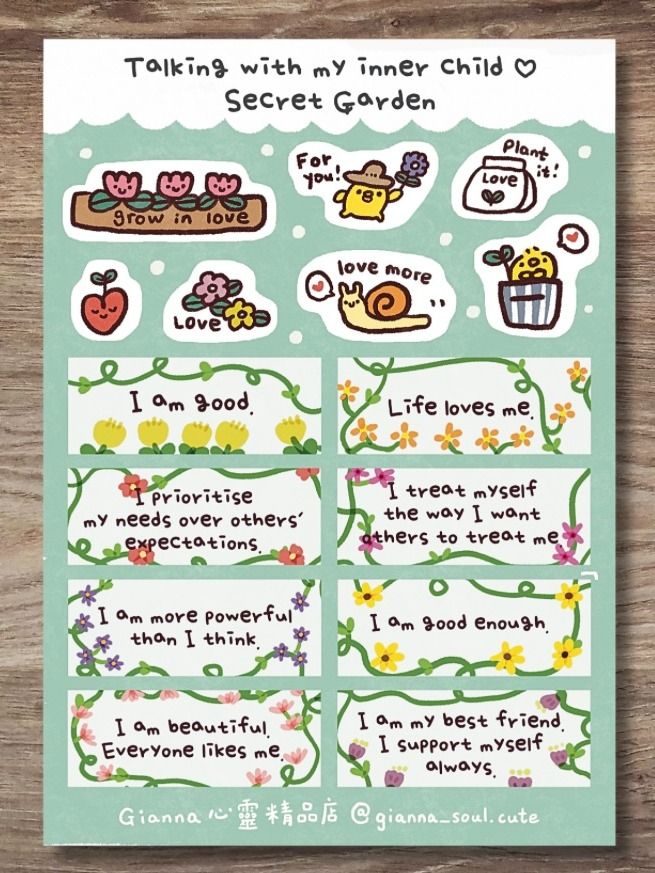 Talking with my inner child ♡
Secret Garden
For you!
Plant it!
LOVE
grow in love
love more
LOVE
I am good.
Life loves me.
I prioritise
my needs over others'
expectations.
I treat myself
the way I want
others to treat me
I am more powerful
than I think.
I am good enough.
I am beautiful.
Everyone likes me.
I am my best friend.
I support myself
always.
Gianna 心靈精品店 @gianna_soul.cute